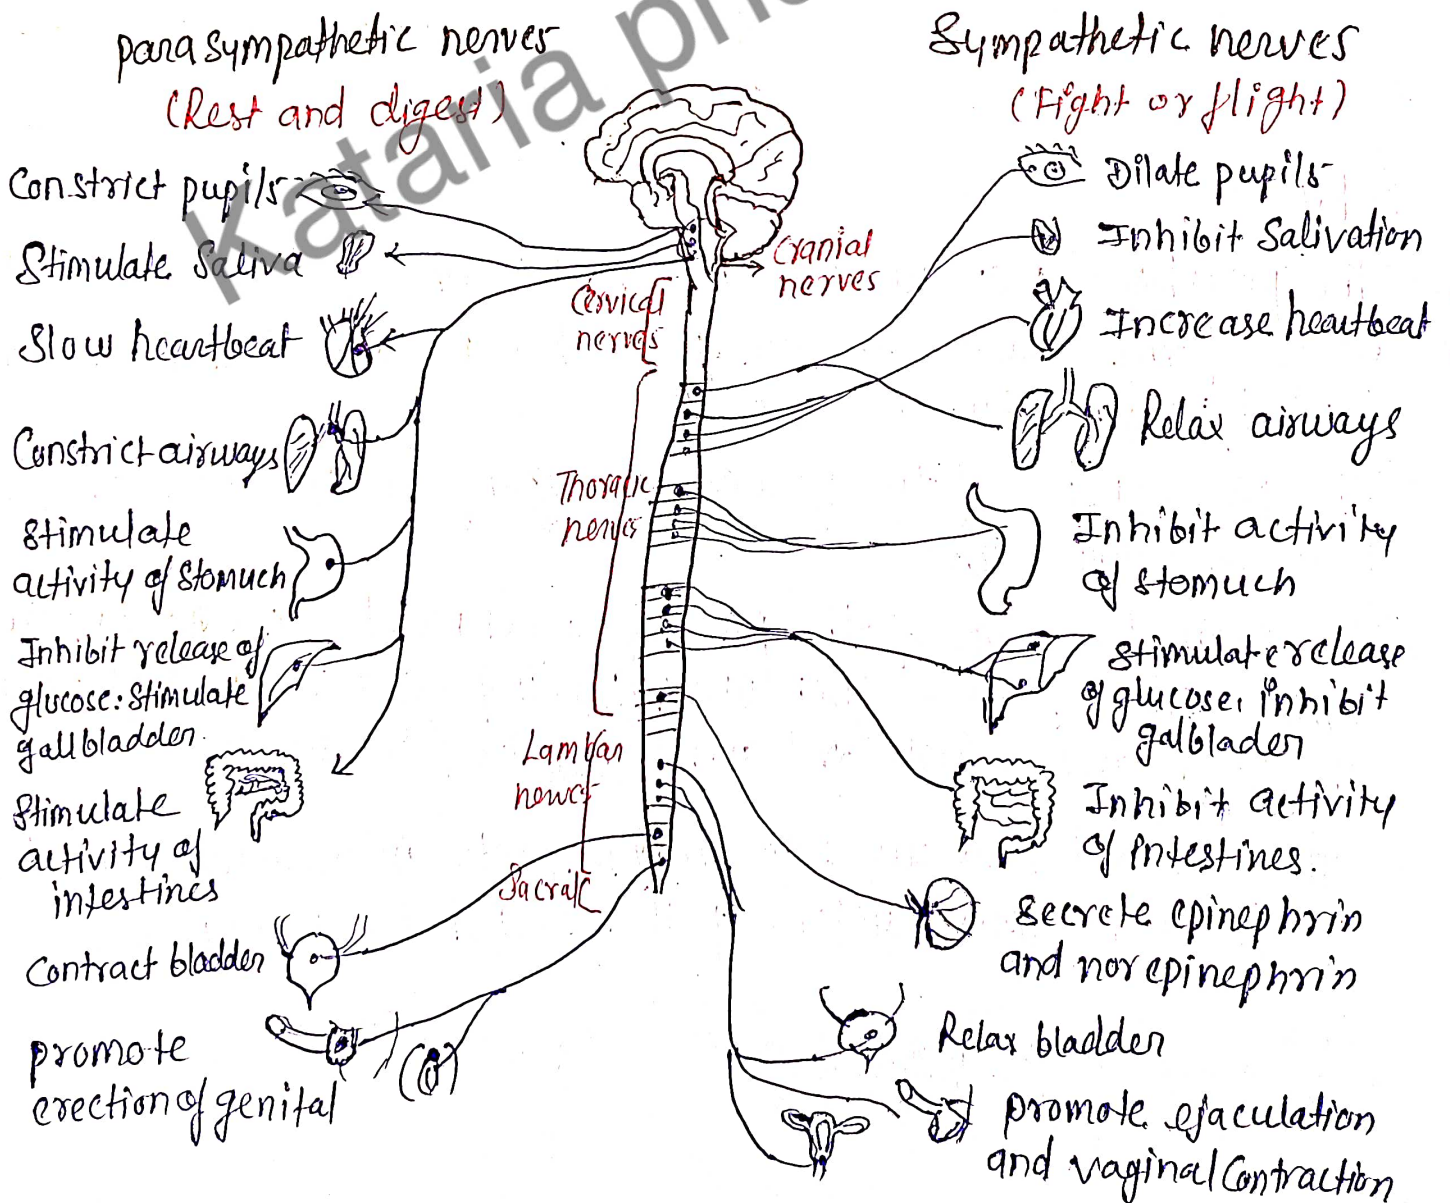 parasympathetic nerves
(Rest and digest)
Constrict pupils
Stimulate Saliva
Slow heartbeat
Constrict airways
Stimulate
activity of Stomuch
Inhibit release of
glucose: Stimulate
gallbladder
Stimulate
activity of
intestines
Contract bladder
promote
erection of genital
Cranial
nerves
Cervical
nerves
Thoracic
nerves
Lambar
Sacral
Sympathetic nerves
(Fight or flight)
Dilate pupils
Inhibit Salivation
Increase heartbeat
Relax airways
Inhibit activity
of stomuch
Stimulate release
of glucose, inhibit
galblader
Inhibit activity
of Intestines.
Secrete Epinephrin
and norepinephrin
Relax bladder
promote ejaculation
and vaginal Contraction
Kataria